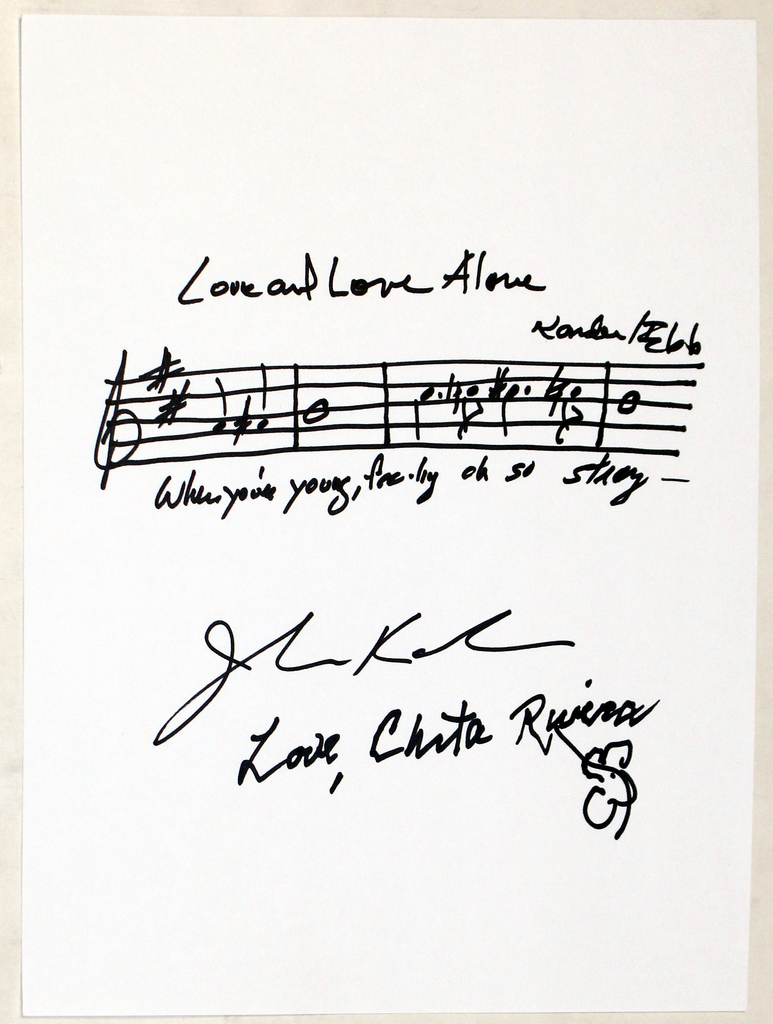 Love and Love Alone
Kander/Ebb
When you're young, feeling oh so strong —
John Kander
Love, Chita Rivera